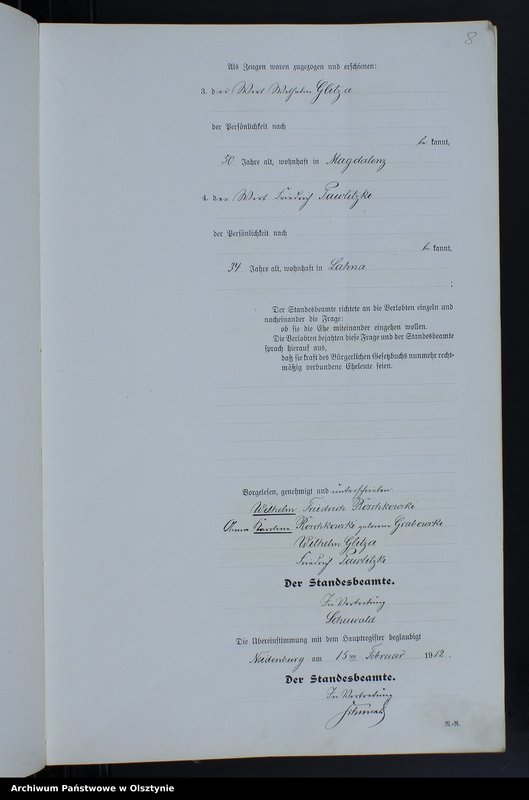 8
Als Zeugen waren zugezogen und erschienen:
3. der Wirt Wilhelm Glitza
der Persönlichkeit nach
be kannt,
50 Jahre alt, wohnhaft in Magdalenz
4. der Wirt Friedrich Pawlitzki
der Persönlichkeit nach
be kannt,
34 Jahre alt, wohnhaft in Lahna
;
Der Standesbeamte richtete an die Verlobten einzeln und
nacheinander die Frage:
ob sie die Ehe miteinander eingehen wollen.
Die Verlobten bejahten diese Frage und der Standesbeamte
sprach hierauf aus,
daß sie kraft des Bürgerlichen Gesetzbuchs nunmehr recht-
mäßig verbundene Eheleute seien.
Vorgelesen, genehmigt und unterschrieben
Wilhelm Friedrich Roschkowski
Anna Karoline Roschkowski geborene Grabowski
Wilhelm Glitza
Friedrich Pawlitzki
Der Standesbeamte.
In Vertretung
Schuwald
Die Übereinstimmung mit dem Hauptregister beglaubigt
Neidenburg am 15ten Februar 1912.
Der Standesbeamte.
In Vertretung
Schuwald
N.-R.
Archiwum Państwowe w Olsztynie